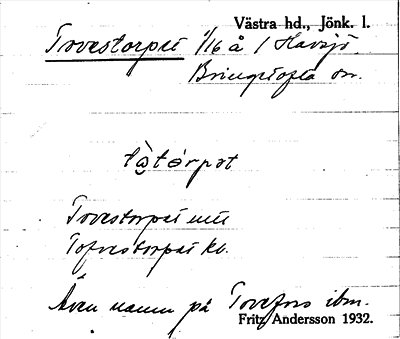 Västra hd., Jönk. l.
Tovestorpet 1/16 å 1 Havsjö
Bringetofta sn.
tåtórpət
Tovestorpet utt
Tofvestorpet kb.
Även namn på Tovefors ibm.
Fritz Andersson 1932.